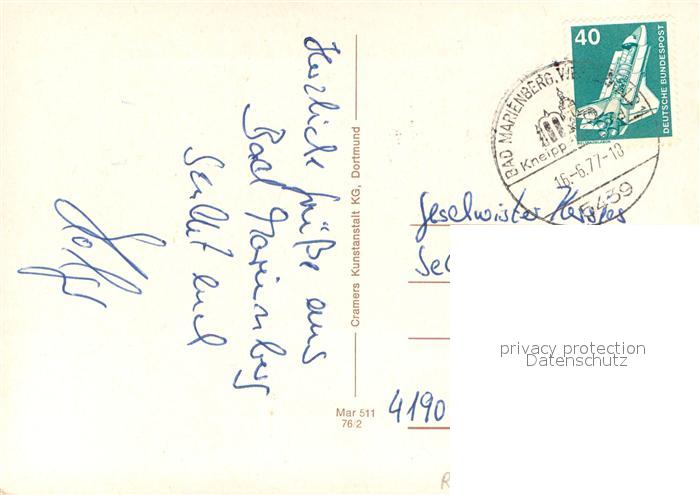 Herzliche Grüße aus
Bad Marienberg
sendet euch
Cramers Kunstanstalt KG, Dortmund
Mar 511
76/2
40
DEUTSCHE BUNDESPOST
BAD MARIENBERG,
Kneipp
16.-6.77-18
5439
Geschwister
4190
privacy protection
Datenschutz